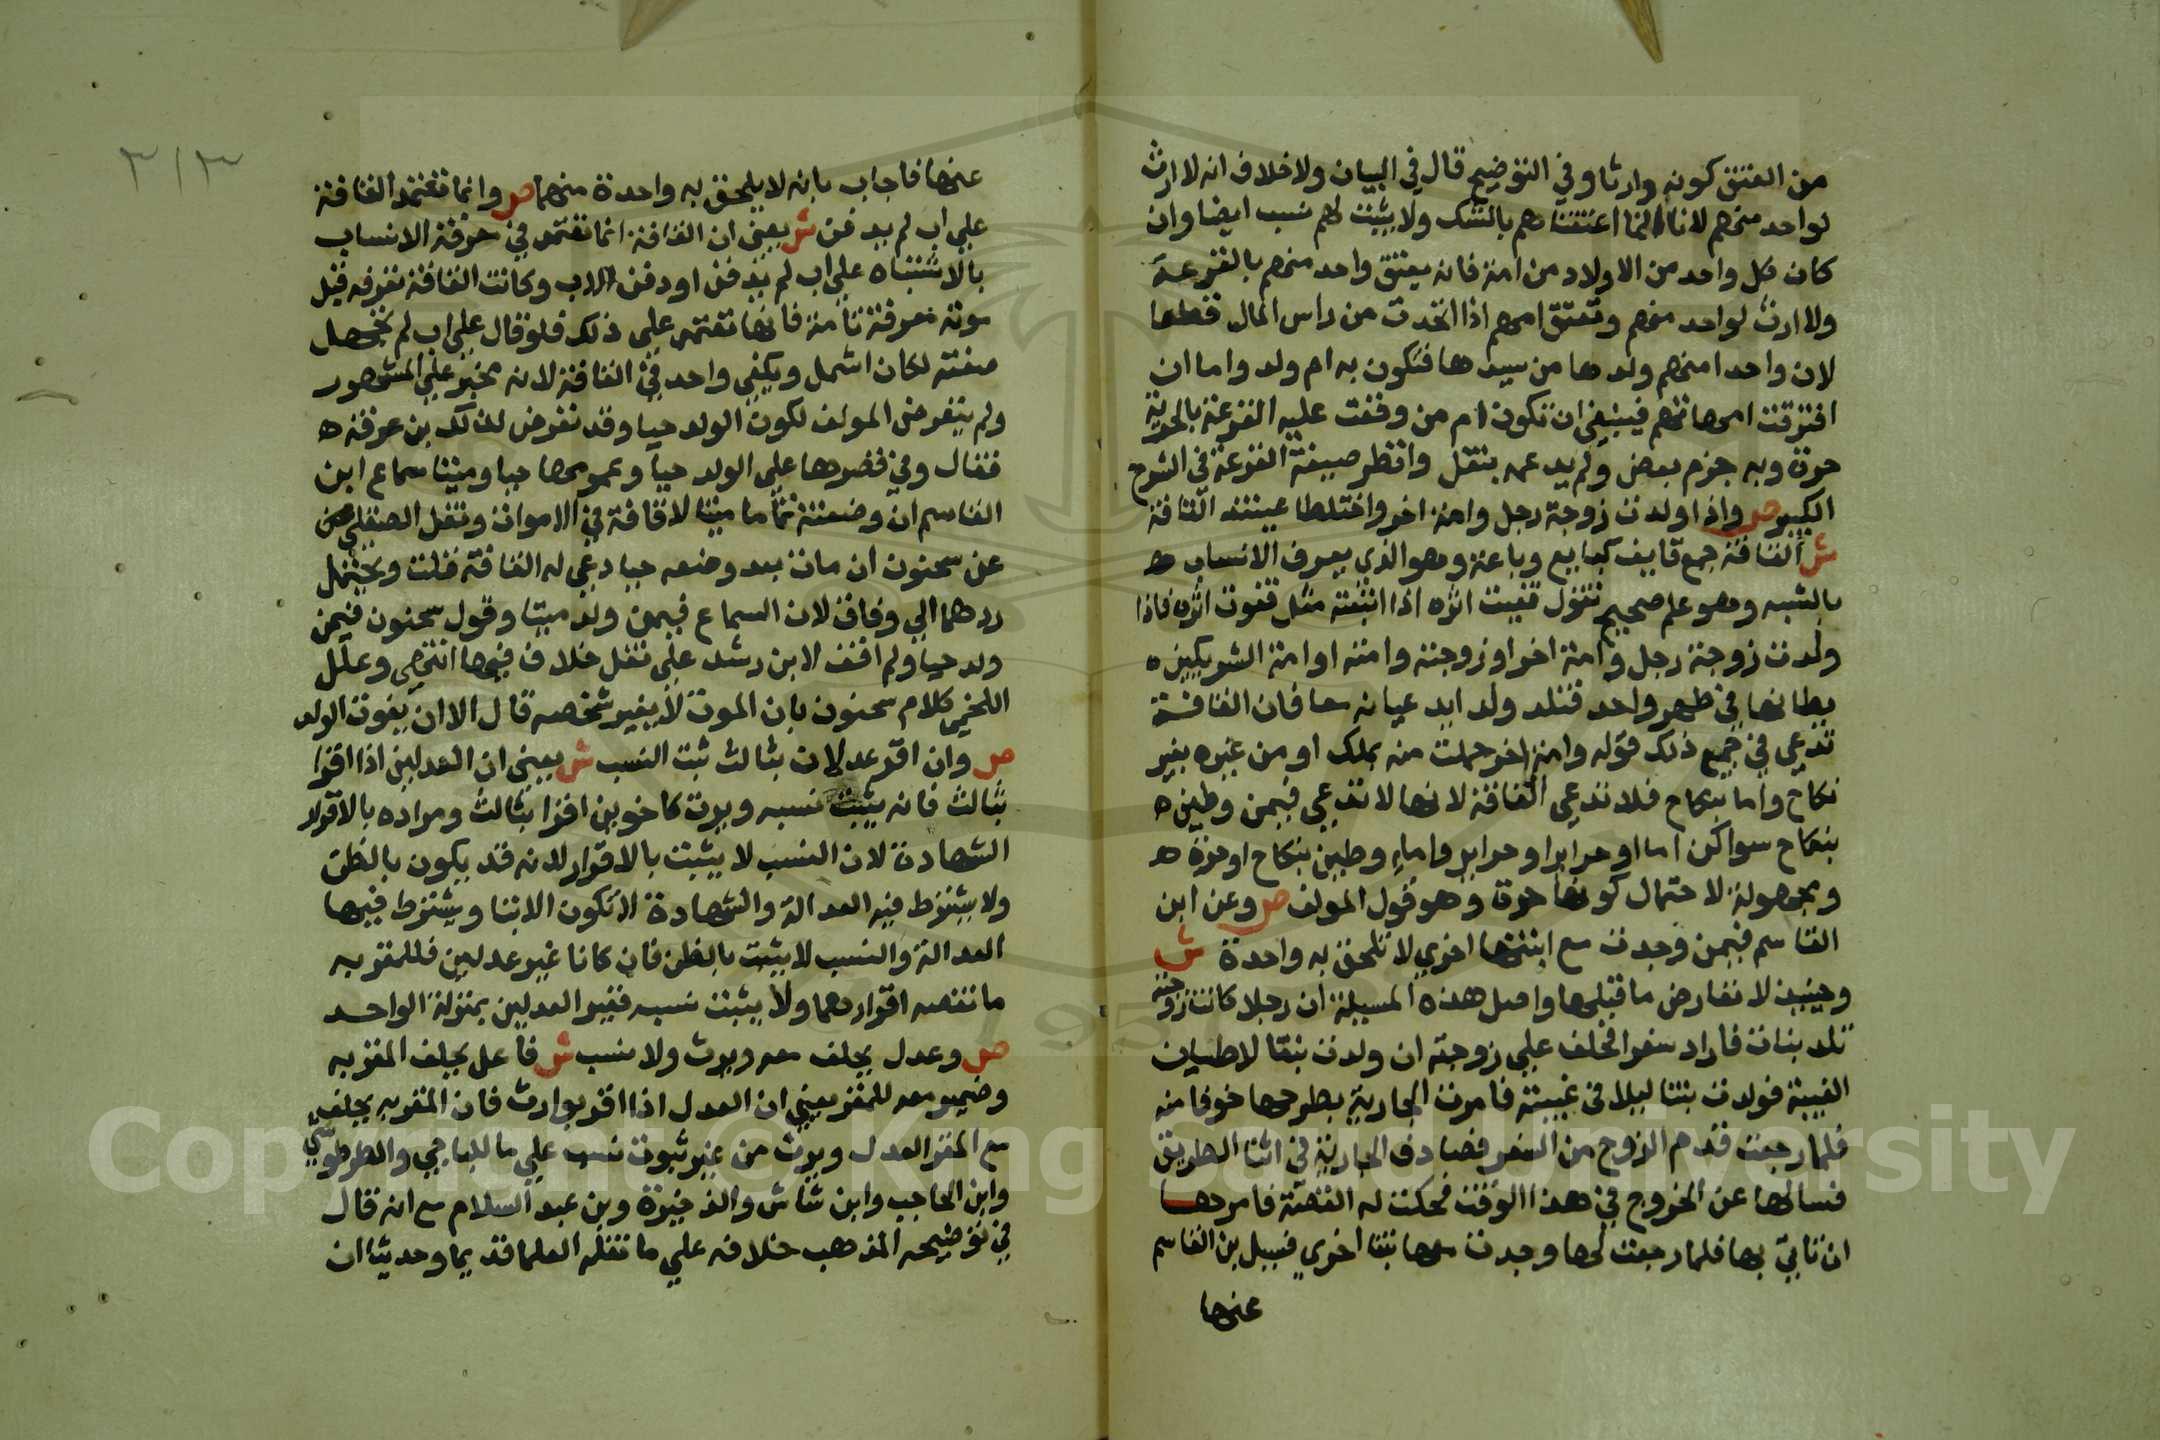 من العتق كونه وارثا وفي التوضيح قال في البيان ولا خلاف انه لا ارث
لواحد منهم لانا انما اعتقناهم بالشك ولا يثبت لهم نسب ايضا وان
كان كل واحد من الاولاد من امة فانه يعتق واحد منهم بالقرعة
ولا ارث لواحد منهم وتعتق امهم اذا اتحدت من راس المال قطعا
لان واحدا منهم ولدها من سيدها فتكون به ام ولد واما ان
افترقت امهاتهم فينبغي ان تكون ام من وقعت عليه القرعة بالحرية
حرة وبه جزم بعض ولم يدعمه بنقل وانظر صيغة القرعة في الشرح
الكبير ص واذا ولدت زوجة رجل وامة اخر واختلطا عينته القافة
ش القافة جمع قايف كبايع وباعة وهو الذي يعرف الانساب ه
بالشبه وهو علم صحيح تقول قفيت اثره اذا اتبعته مثل قفوت اثره فاذا
ولدت زوجة رجل وامة اخر او زوجته وامته او امة الشريكين ه
يطانها في طهر واحد فتلد ولد ابد عيانه معا فان القافة
تدعي في جميع ذلك قوله وامة اخر حملت منه بملك او من غيره بغير
نكاح واما بنكاح فلا تدعى القافة لانها لا تدعي فيمن وطين ه
بنكاح سوا كن اما او حرايرا وحراير واماء وطين بنكاح او حرة ه
ومجهولة لاحتمال كونها حرة وهو قول المولف ص وعن ابن
القاسم فيمن وجدت مع ابنتها اخري لا تلحق به واحدة ش
وحينيذ لا تعارض ما قبلها واصل هذه المسيلة ان رجلا كانت زوجته
تلد بنات فاراد سفرا فحلف علي زوجته ان ولدت بنتا لاطيلن
الغيبة فولدت بنتا ليلا في غيبته فامرت الجارية بطرحها خوفا منه
فلما رجعت قدم الزوج من السفر فصادف الجارية في اثنا الطريق
فسالها عن الخروج في هذا الوقت فحكت له القصة فامرها
ان تاتي بها فلما رجعت لها وجدت معها بنتا اخري فسيل بن القاسم
عنها
٣١٣
عنها فاجاب بانه لا يلحق به واحدة منهما ص وانما تعتمد القافة
علي اب لم يدفن ش يعني ان القافة انما تعتمد في حرفة الانساب
بالاشتباه علي اب لم يدفن او دفن الاب وكانت القافة تعرفه قبل
موته معرفة تامة فانها تعتمد علي ذلك فلو قال علي اب لم تجهل
صفته لكان اشمل ويكفي واحد في القافة لانه مخبر علي المشهور
ولم يتعرض المولف لكون الولد حيا وقد تعرض لذلك بن عرفة ه
فقال وفي قصرها علي الولد حيا وعمومها حيا وميتا سماع ابن
القاسم ان وضعته تماما ميتا لا قافة في الاموات ونقل الصقلي
عن سحنون ان مات بعد وضعه حيا دعي له القافة قلت ويحتمل
ردهما الي وفاق لان السماع فيمن ولد ميتا وقول سحنون فيمن
ولد حيا ولم اقف لابن رشد علي نقل خلاف فيها انتهي وعلل
اللخمي كلام سحنون بان الموت لا يغير شخصه قال الا ان يفوت الولد
ص وان اقر عدلان بثالث ثبت النسب ش يعني ان العدلين اذا اقرا
بثالث فانه يثبت نسبه ويرث كاخوين اقرا بثالث ومراده بالاقرار
الشهادة لان النسب لا يثبت بالاقرار لانه قد يكون بالظن
ولا يشترط فيه العدالة والشهادة لا تكون الا بتا ويشترط فيها
العدالة والنسب لا يثبت بالظن فان كانا غير عدلين فللمقر به
ما نقصه اقرارهما ولا يثبت نسبه فغير العدلين بمنزلة الواحد
ص وعدل يحلف معه ويرث ولا نسب ش فاعل يحلف المقر به
وضمير معه للمقر يعني ان العدل اذا اقر بوارث فان المقر به يحلف
مع المقر العدل ويرث من غير ثبوت نسب علي ما للباجي والطرطوشي
وابن الحاجب وابن شاش والذخيرة وبن عبد السلام مع انه قال
في توضيحه المذهب خلافه علي ما نقله العلما قديما وحديثا ان
Copyright © King Saud University
1957